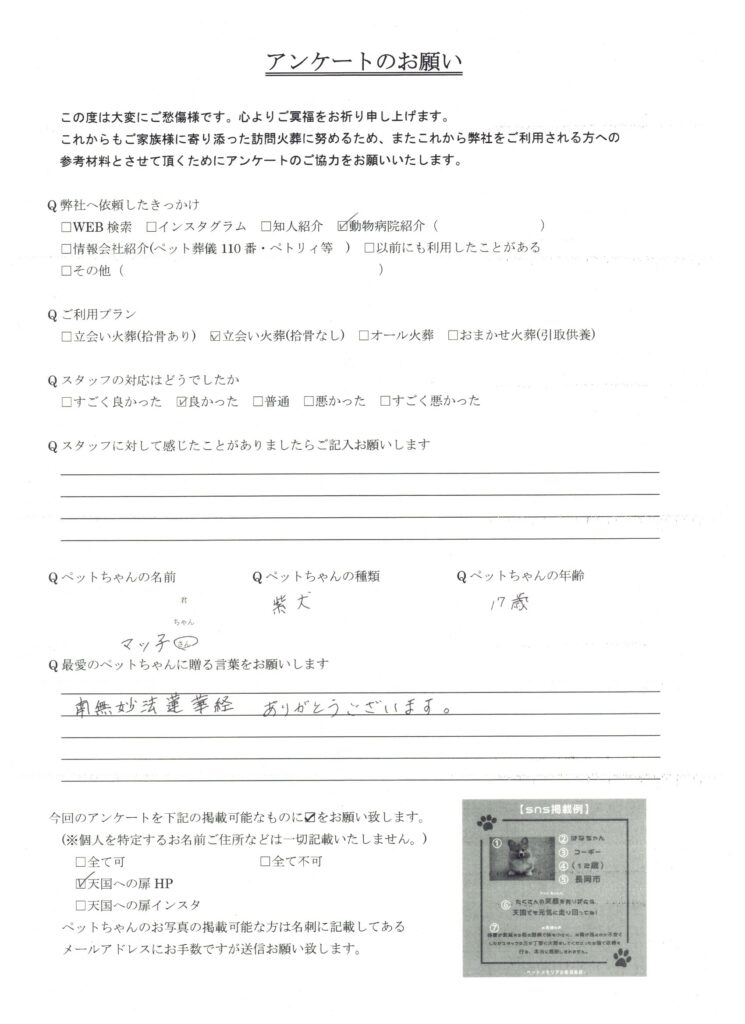 アンケートのお願い
この度は大変にご愁傷様です。心よりご冥福をお祈り申し上げます。
これからもご家族様に寄り添った訪問火葬に努めるため、またこれから弊社をご利用される方への
参考材料とさせて頂くためにアンケートのご協力をお願いいたします。
Q 弊社へ依頼したきっかけ
□WEB 検索 □インスタグラム □知人紹介 ☑動物病院紹介（ ）
□情報会社紹介(ペット葬儀 110 番・ペトリィ等 ) □以前にも利用したことがある
□その他（ ）
Q ご利用プラン
□立会い火葬(拾骨あり) ☑立会い火葬(拾骨なし) □オール火葬 □おまかせ火葬(引取供養)
Q スタッフの対応はどうでしたか
□すごく良かった ☑良かった □普通 □悪かった □すごく悪かった
Q スタッフに対して感じたことがありましたらご記入お願いします
Q ペットちゃんの名前 Q ペットちゃんの種類 Q ペットちゃんの年齢
君 紫犬 17歳
ちゃん
マッ子 さん
Q 最愛のペットちゃんに贈る言葉をお願いします
南無妙法蓮華経 ありがとうございます。
今回のアンケートを下記の掲載可能なものに☑をお願い致します。
(※個人を特定するお名前ご住所などは一切記載いたしません。)
□全て可 □全て不可
☑天国への扉 HP
□天国への扉インスタ
ペットちゃんのお写真の掲載可能な方は名刺に記載してある
メールアドレスにお手数ですが送信お願い致します。
【sns掲載例】
①
② はなちゃん
③ コーギー
④ (12歳)
⑤ 長岡市
⑥ たくさんの笑顔をありがとね
天国でも元気に走り回ってね!
⑦